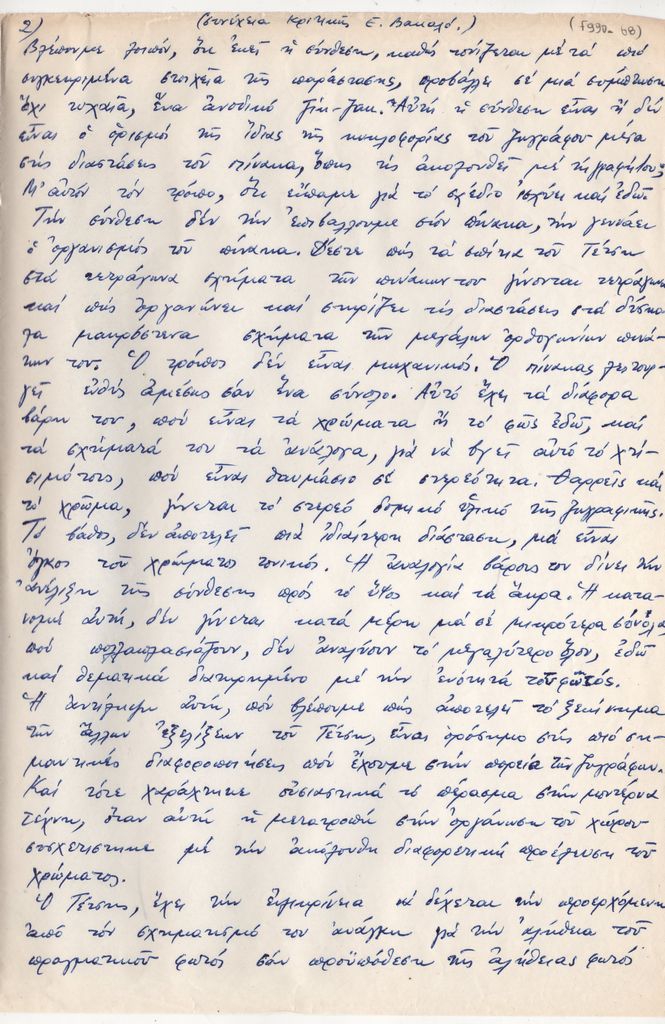 2) (συνέχεια Κριτικής Ε. Βακαλό.) (1990-68)
Βλέπουμε λοιπόν, ὅτι ἐκεῖ ἡ σύνθεση, καθώς τονίζεται μέ τά πιό
συγκεκριμένα στοιχεῖα τῆς παράστασης, προβάλλει σέ μιά σύμπτωση
ὄχι τυχαία, ἕνα ἀνοδικό ζίκ-ζακ. Αὐτή ἡ σύνθεση εἶναι ἤ δέν
εἶναι ὁ ὁρισμός τῆς ἴδιας τῆς κυκλοφορίας τοῦ ζωγράφου μέσα
στίς διαστάσεις τοῦ πίνακα, ὅπως τίς ἀκολουθεῖ μέ τή γραφή του;
Μ' αὐτόν τόν τρόπο, ὅτι εἴπαμε γιά τό σχέδιο ἰσχύει καί ἐδῶ.
Τήν σύνθεση δέν τήν ἐπιβάλλουμε στόν πίνακα, τήν γεννάει
ὁ ὀργανισμός τοῦ πίνακα. Δέστε πώς τά σπίτια τοῦ Τέτση
στά τετράγωνα σχήματα τῶν πινάκων του γίνονται τετράγωνα
καί πώς ὀργανώνει καί στηρίζει τίς διαστάσεις στά δύσκο-
λα μακρόστενα σχήματα τῶν μεγάλων ὀρθογωνίων πινά-
κων του. Ὁ τρόπος δέν εἶναι μηχανικός. Ὁ πίνακας λειτουρ-
γεῖ εὐθύς ἀμέσως σάν ἕνα σύνολο. Αὐτό ἔχει τά διάφορα
βάρη του, πού εἶναι τά χρώματα ἤ τό φῶς ἐδῶ, καί
τά σχήματά του τά ἀνάλογα, γιά νά βγεῖ αὐτό τό χτί-
σιμό τους, πού εἶναι θαυμάσιο σέ στερεότητα. Θαρρεῖς καί
τό χρῶμα, γίνεται τό στερεό δομικό ὑλικό τῆς ζωγραφικῆς.
Τό βάθος, δέν ἀποτελεῖ πιά ἰδιαίτερη διάσταση, μά εἶναι
ὄγκος τοῦ χρώματος τονικός. Ἡ ἀναλογία βάρους του δίνει τήν
ἀνέλιξη τῆς σύνθεσης πρός τό ὕψος καί τά ἄκρα. Ἡ κατα-
νομή αὐτή, δέν γίνεται κατά μέρη μά σέ μικρότερα σύνολα
πού πολλαπλασιάζουν, δέν ἀναλύουν τό μεγαλύτερο ὅλον, ἐδῶ
καί θεματικά διατηρημένο μέ τήν ἑνότητα τοῦ φωτός.
Ἡ ἀντίληψη αὐτή, πού βλέπουμε πώς ἀποτελεῖ τό ξεκίνημα
τῶν ἄλλων ἐξελίξεων τοῦ Τέτση, εἶναι ὁρόσημο στίς πιό ση-
μαντικές διαφοροποιήσεις πού ἔχουμε στήν πορεία τῶν ζωγράφων.
Καί τότε χαράχτηκε οὐσιαστικά τό πέρασμα στήν μοντέρνα
τέχνη, ὅταν αὐτή ἡ μετατροπή στήν ὀργάνωση τοῦ χώρου
συσχετίστηκε μέ τήν ἀκόλουθη διαφορετική προέλευση τοῦ
χρώματος.
Ὁ Τέτσης, ἔχει τήν εἰλικρίνεια νά δέχεται τήν προερχόμενη
ἀπό τόν σχηματισμό του ἀνάγκη γιά τήν ἀλήθεια τοῦ
πραγματικοῦ φωτός σάν προϋπόθεση τῆς ἀλήθειας φωτός